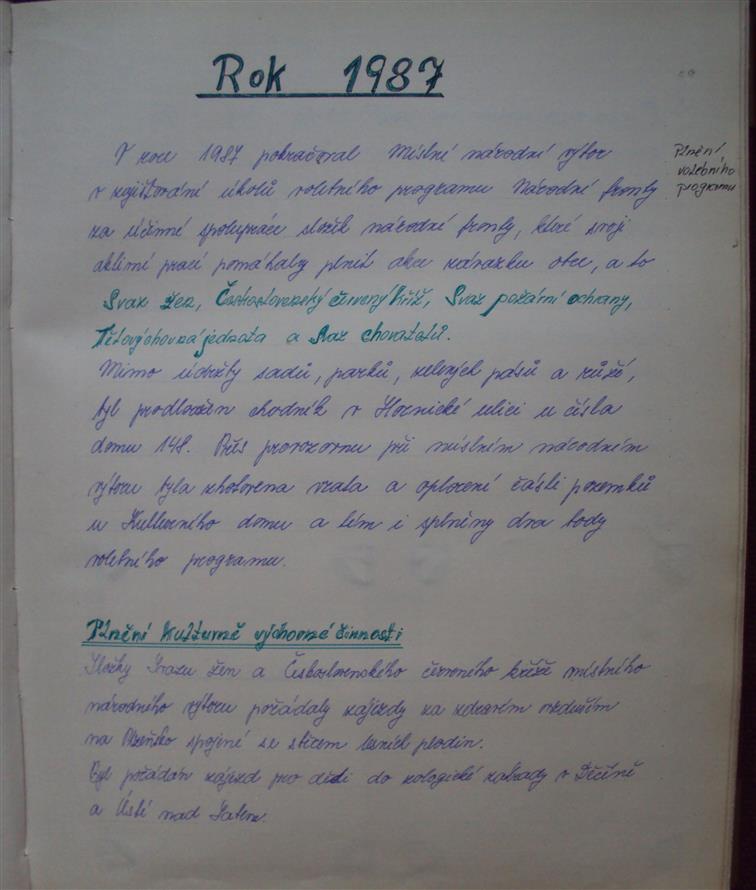 Rok 1987
V roce 1987 pokračoval Místní národní výbor
Plnění
volebního
programu
v zajišťování úkolů volebního programu Národní fronty
za účinné spolupráce složek národní fronty, které svojí
aktivní prací pomáhaly plnit akce závazku obce, a to
Svaz žen, Československý červený kříž, Svaz požární ochrany,
Tělovýchovná jednota a Svaz chovatelů.
Mimo údržby sadů, parků, zelených pásů a růží,
byl prodloužen chodník v Hornické ulici u čísla
domu 148. Přes provozovnu při místním národním
výboru byla zhotovena vrata a oplocení části pozemků
u Kulturního domu a tím i splněny dva body
volebního programu.
Plnění kulturně výchovné činnosti
Složky Svazu žen a Československého červeného kříže místního
národního výboru pořádaly zájezdy za zdravím vzduchem
na Plzeňsko spojené se sběrem lesních plodin.
Byl pořádán zájezd pro děti do zoologické zahrady v Děčíně
a Ústí nad Labem.